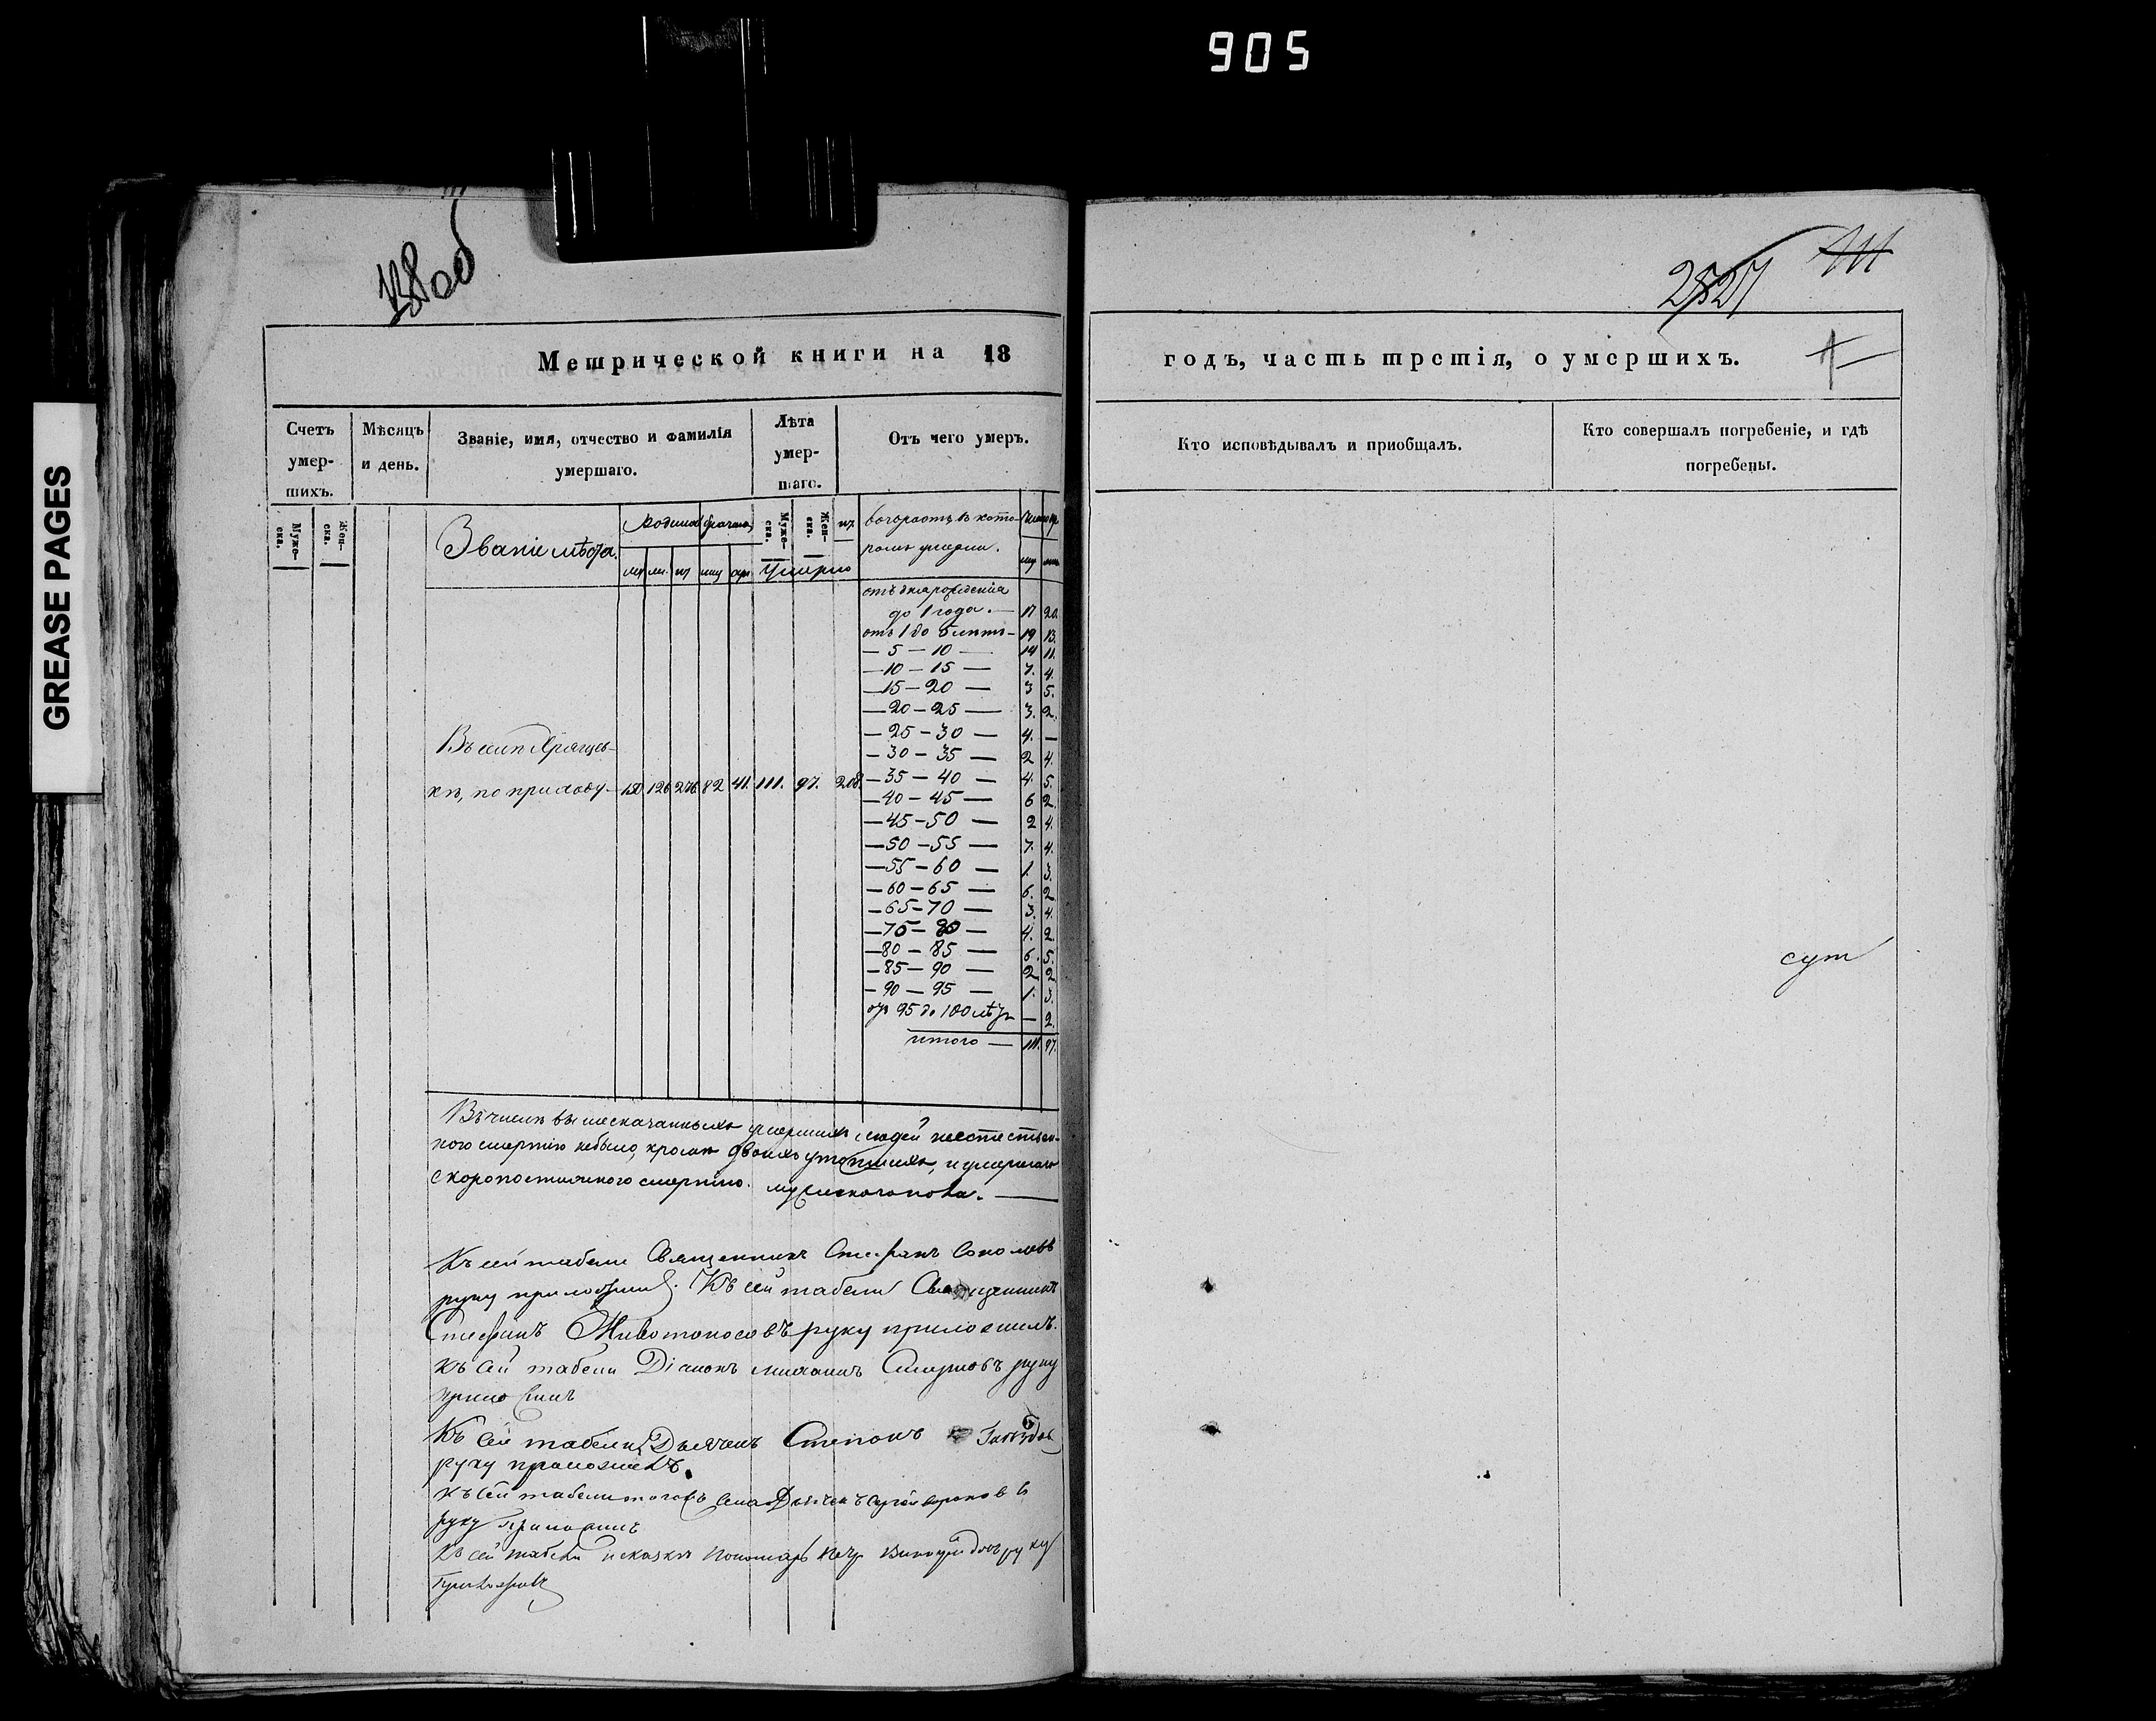 905
GREASE PAGES
138 об
2527
111
Метрической книги на 18
годъ, часть третія, о умершихъ.
Счетъ умер-шихъ.
Мѣсяцъ и день.
Званіе, имя, отчество и фамилія умершаго.
Лѣта умер-шаго.
Отъ чего умеръ.
Кто исповѣдывалъ и приобщалъ.
Кто совершалъ погребеніе, и гдѣ погребены.
Муже-ска.
Жен-ска.
Званіе мѣста.
Муже-ска.
Жен-ска.
Умерло
возрастъ въ кото-
ромъ умерли.
отъ дня рожденія
до 1 года. — 17 20.
отъ 1 до 5 лѣтъ — 19 13.
— 5 — 10 — 14 11.
— 10 — 15 — 7. 4.
— 15 — 20 — 3 5.
— 20 — 25 — 3. 2.
— 25 — 30 — 4. —
— 30 — 35 — 2 4.
— 35 — 40 — 4. 5.
— 40 — 45 — 6 2.
— 45 — 50 — 2 4.
— 50 — 55 — 7. 4.
— 55 — 60 — 1. 3.
— 60 — 65 — 6. 2
— 65 — 70 — 3. 4.
— 75 — 80 — 4. 2.
— 80 — 85 — 6. 5.
— 85 — 90 — 2 2
— 90 — 95 — 1. 3.
отъ 95 до 100 лѣтъ — 2.
итого — 111. 97.
по приходу — 150 126 276 82 41. 111. 97. 208.
Въ числѣ вышесказанныхъ умершихъ людей неестествен-
ною смертію небыло, кромѣ двоихъ утопшихъ, и умершаго
скоропостижною смертію мужеска пола. —
Къ сей табели Священникъ Стефанъ Соколовъ
руку приложилъ. Къ сей табели Священникъ
Стефанъ Животоносовъ руку приложилъ.
Къ сей табели Діаконъ Михаилъ Смирновъ руку
приложилъ
Къ сей табели Дьячекъ Степанъ Гнѣздов
руку приложилъ.
къ сей табели тогожъ села Дьячекъ Сергей
руку приложилъ
Къ сей табели Пономарь Петр руку
приложилъ
сут